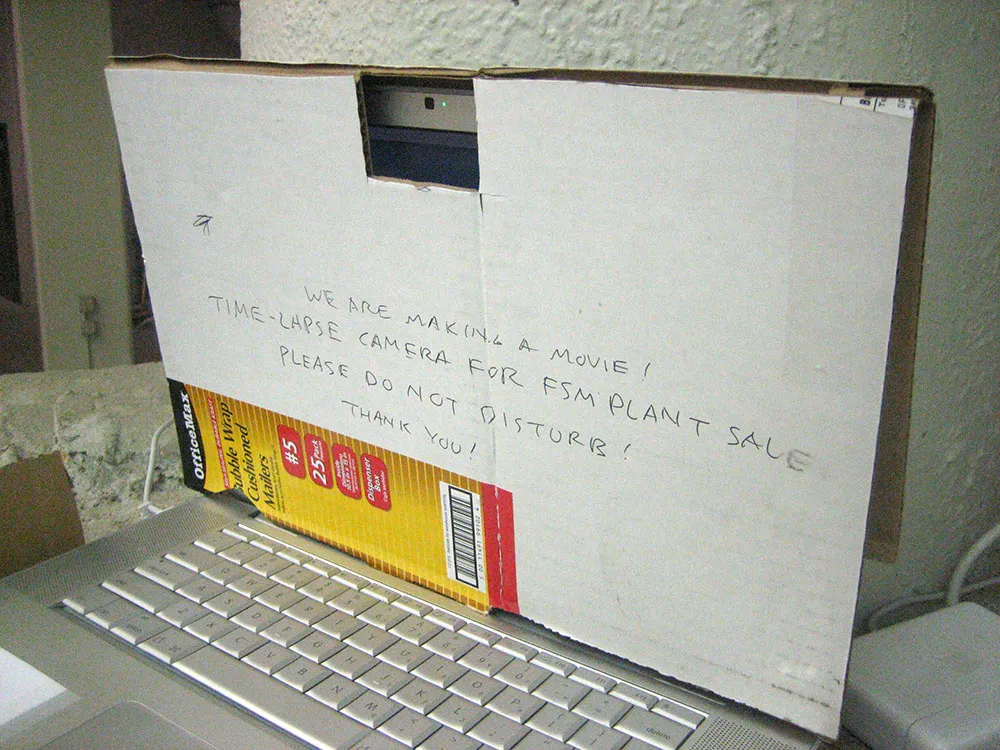 WE ARE MAKING A MOVIE!
TIME-LAPSE CAMERA FOR FSM PLANT SALE
PLEASE DO NOT DISTURB!
THANK YOU!
OfficeMax
Bubble Wrap
Cushioned
Mailers
#5
25 Pack
Dispenser
Box
delete